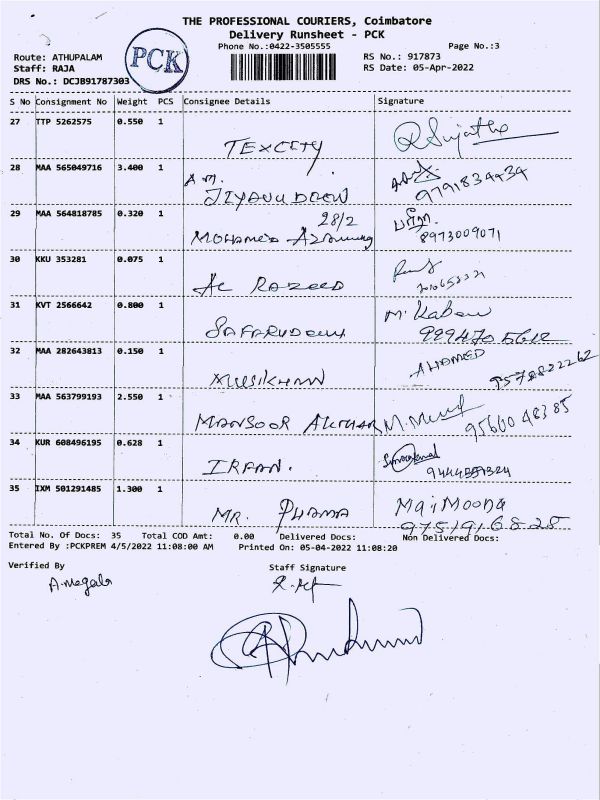 THE PROFESSIONAL COURIERS, Coimbatore
Delivery Runsheet - PCK
Phone No.:0422-3505555 Page No.:3
Route: ATHUPALAM RS No.: 917873
Staff: RAJA RS Date: 05-Apr-2022
DRS No.: DCJB91787303
PCK
S No Consignment No Weight PCS Consignee Details Signature
27 TTP 5262575 0.550 1
TEXCITY
28 MAA 565049716 3.400 1
A.M. 9791834434
29 MAA 564818785 0.320 1
28/2
MOHAMED 8973009071
30 KKU 353281 0.075 1
AL RAZEED
31 KVT 2566642 0.800 1 M. Kabeer
SAFARUDEEN
32 MAA 282643813 0.150 1 AHAMED
33 MAA 563799193 2.550 1
MANSOOR
34 KUR 608496195 0.628 1
IRFAN.
35 IXM 501291485 1.300 1 MaiMoona
MR. 9751916828
Total No. Of Docs: 35 Total COD Amt: 0.00 Delivered Docs: Non Delivered Docs:
Entered By :PCKPREM 4/5/2022 11:08:00 AM Printed On: 05-04-2022 11:08:20
Verified By Staff Signature
A.megala